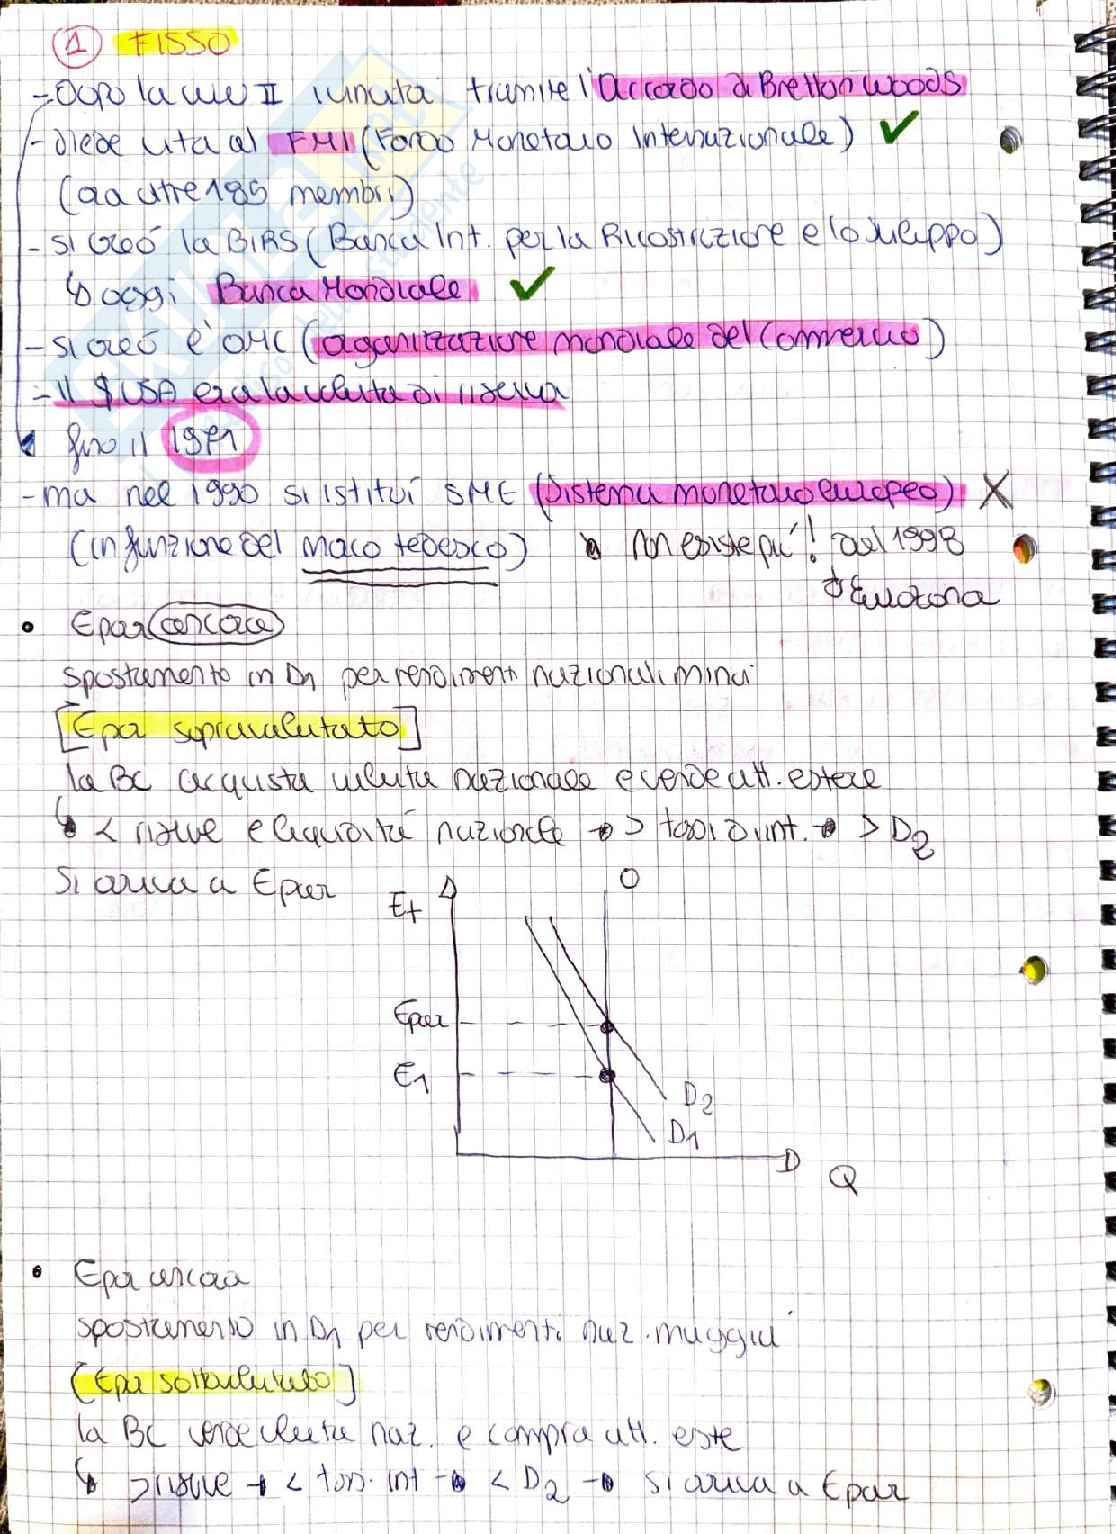 1 FISSO
- Dopo la WW II riunita tramite l'Accordo di Bretton Woods
- diede vita al FMI (Fondo Monetario Internazionale) ✓
(da oltre 185 membri)
- si creó la BIRS (Banca Int. per la Ricostruzione e lo sviluppo)
↳ oggi Banca Mondiale ✓
- si creó l'OMC (organizzazione mondiale del Commercio)
- Il $ USA era la valuta di riserva
fino il 1971
- ma nel 1990 si istituí SME (Sistema monetario europeo) X
(in funzione del marco tedesco) → non esiste piú! dal 1998
→ Eurozona
• Epar (ancora)
spostamento in D1 per rendimenti nazionali minori
[Epar sopravalutato]
la BC acquista valuta nazionale e vende att. estere
↳ < riserve e liquiditá nazionale → > tassi d'int. → > D2
Si arriva a Epar
O
Et
Epar
E1
D2
D1
Q
• Epar ancora
spostamento in D1 per rendimenti naz. maggiori
[Epar sottovalutato]
la BC vende valuta naz. e compra att. este
↳ > riserve → < tass. int → < D2 → si arriva a Epar